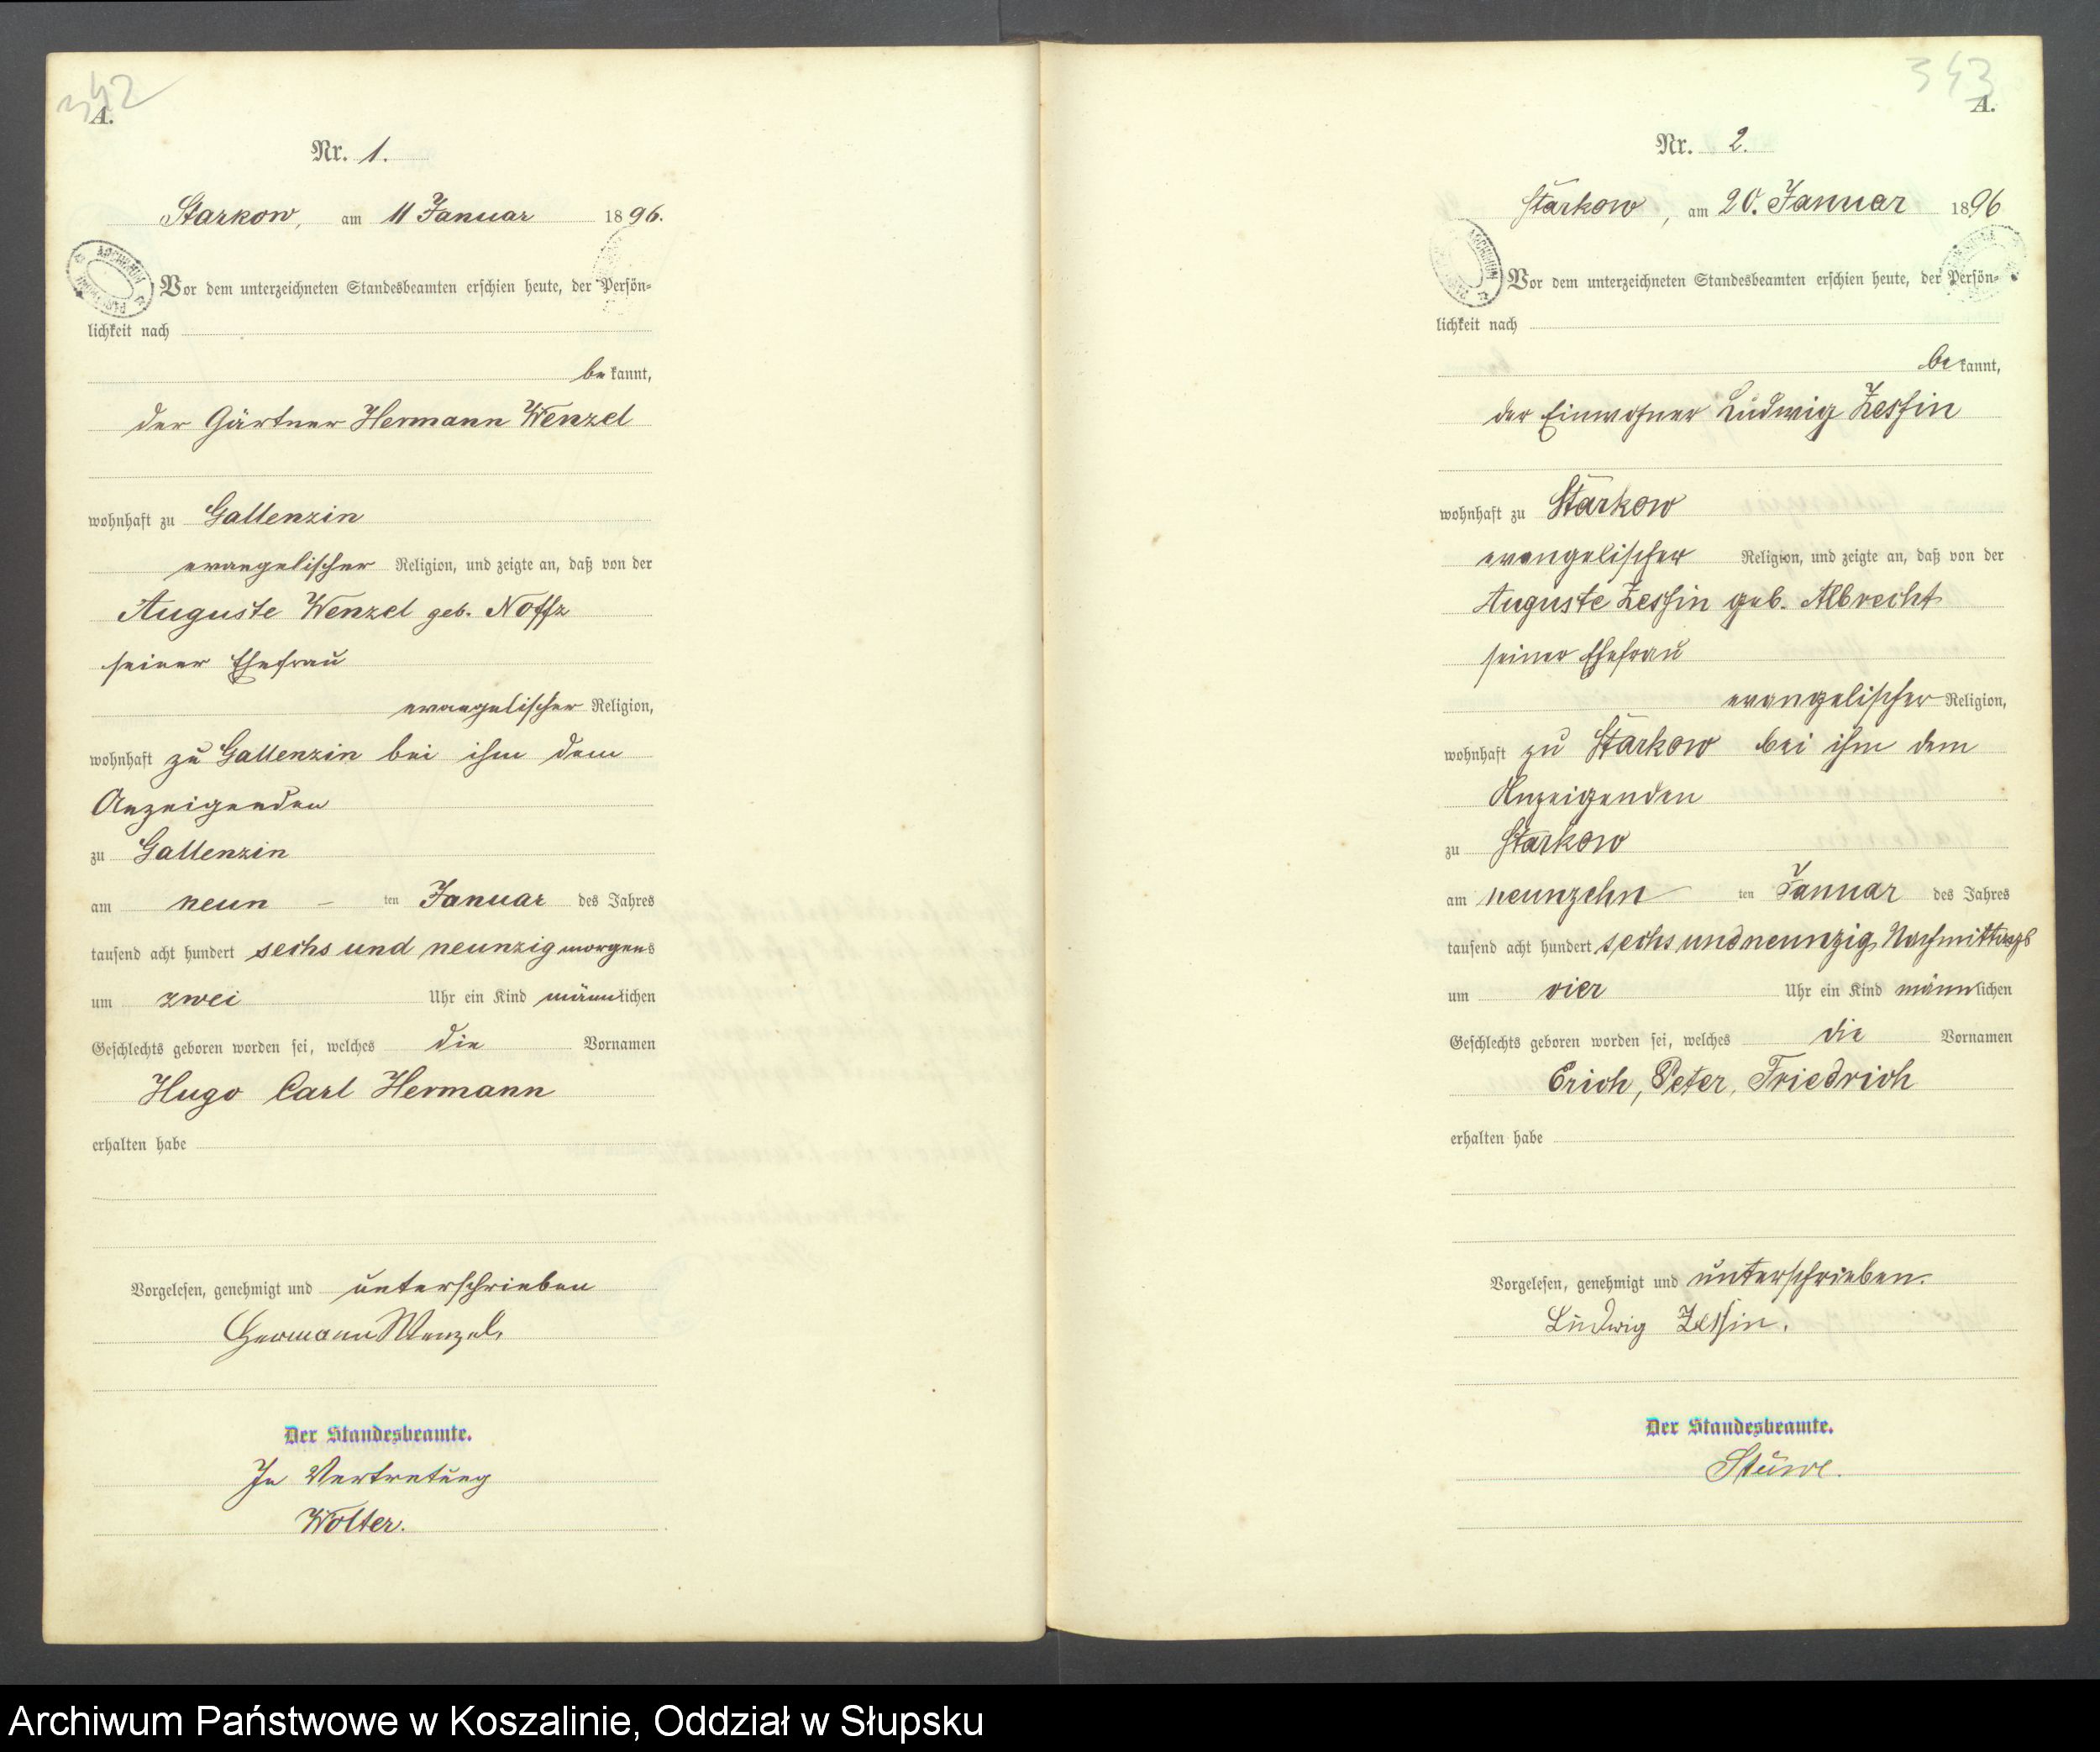 342
A.
Nr. 1.
Starkow, am 11 Januar 1896.
Vor dem unterzeichneten Standesbeamten erschien heute, der Persön=
lichkeit nach
bekannt,
der Gärtner Hermann Wenzel
wohnhaft zu Gallenzin
evangelischer Religion, und zeigte an, daß von der
Auguste Wenzel geb. Noffz
seiner Ehefrau
evangelischer Religion,
wohnhaft zu Gallenzin bei ihm dem
Anzeigenden
zu Gallenzin
am neun - ten Januar des Jahres
tausend acht hundert sechs und neunzig morgens
um zwei Uhr ein Kind männlichen
Geschlechts geboren worden sei, welches die Vornamen
Hugo Carl Hermann
erhalten habe
Vorgelesen, genehmigt und unterschrieben
Hermann Wenzel.
Der Standesbeamte.
In Vertretung
Wolter.
343
A.
Nr. 2.
Starkow, am 20. Januar 1896
Vor dem unterzeichneten Standesbeamten erschien heute, der Persön=
lichkeit nach
bekannt,
der Einwohner Ludwig Zessin
wohnhaft zu Starkow
evangelischer Religion, und zeigte an, daß von der
Auguste Zessin geb. Albrecht
seiner Ehefrau
evangelischer Religion,
wohnhaft zu Starkow bei ihm dem
Anzeigenden
zu Starkow
am neunzehn ten Januar des Jahres
tausend acht hundert sechs und neunzig Nachmittags
um vier Uhr ein Kind männlichen
Geschlechts geboren worden sei, welches die Vornamen
Erich, Peter, Friedrich
erhalten habe
Vorgelesen, genehmigt und unterschrieben.
Ludwig Zessin.
Der Standesbeamte.
Stüwe.
Archiwum Państwowe w Koszalinie, Oddział w Słupsku